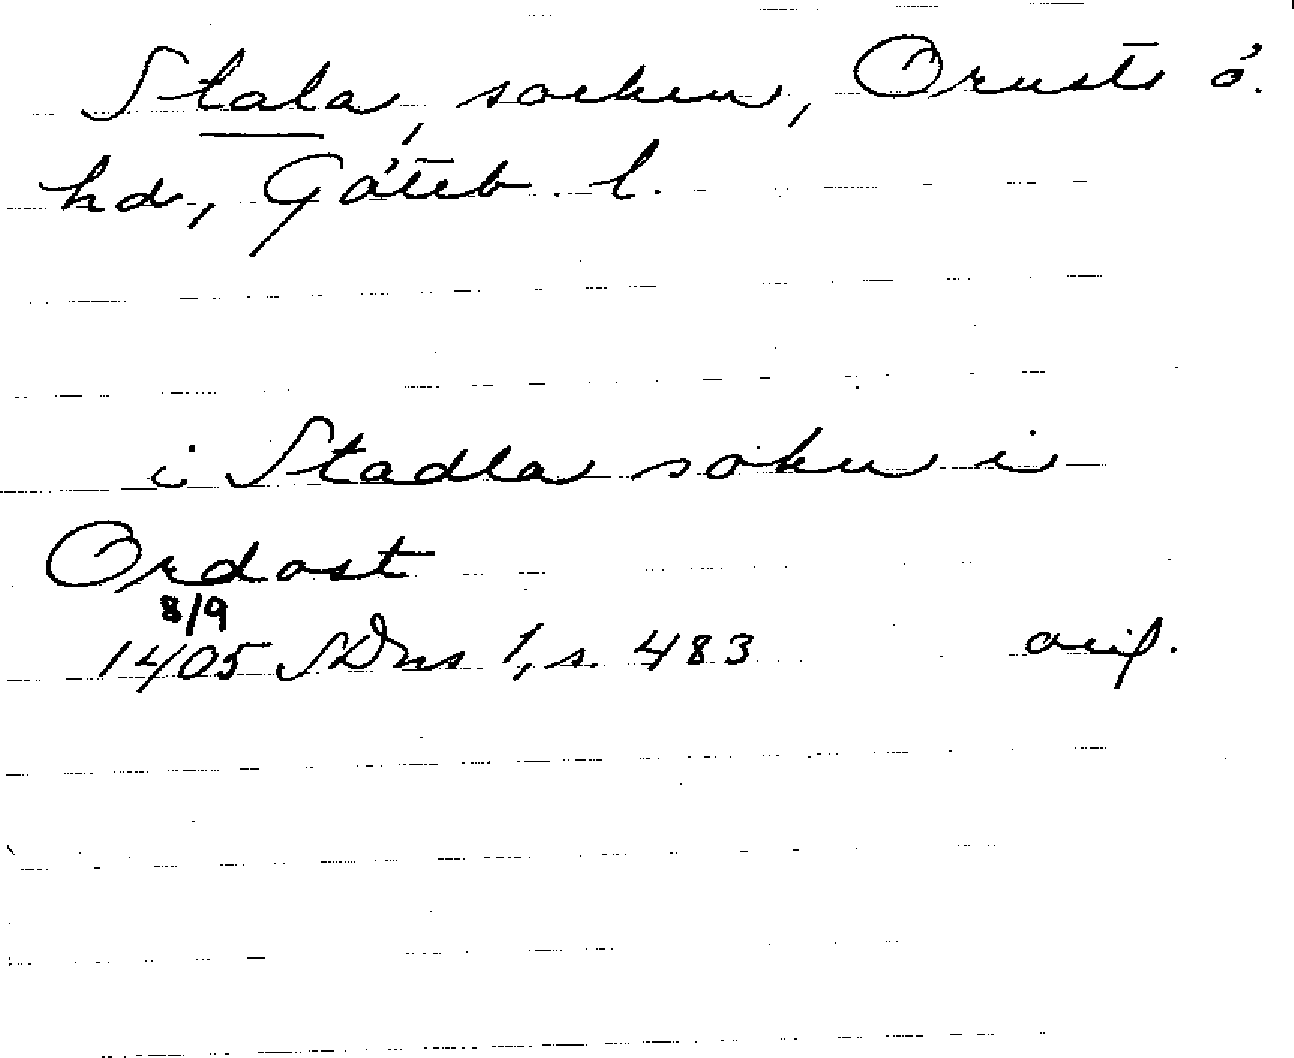 Stala, socken, Orusts ö.
hd, Göteb. l.
i Stadla sokn i
Ordost
8/9
1405 SDns 1, s. 483 orig.